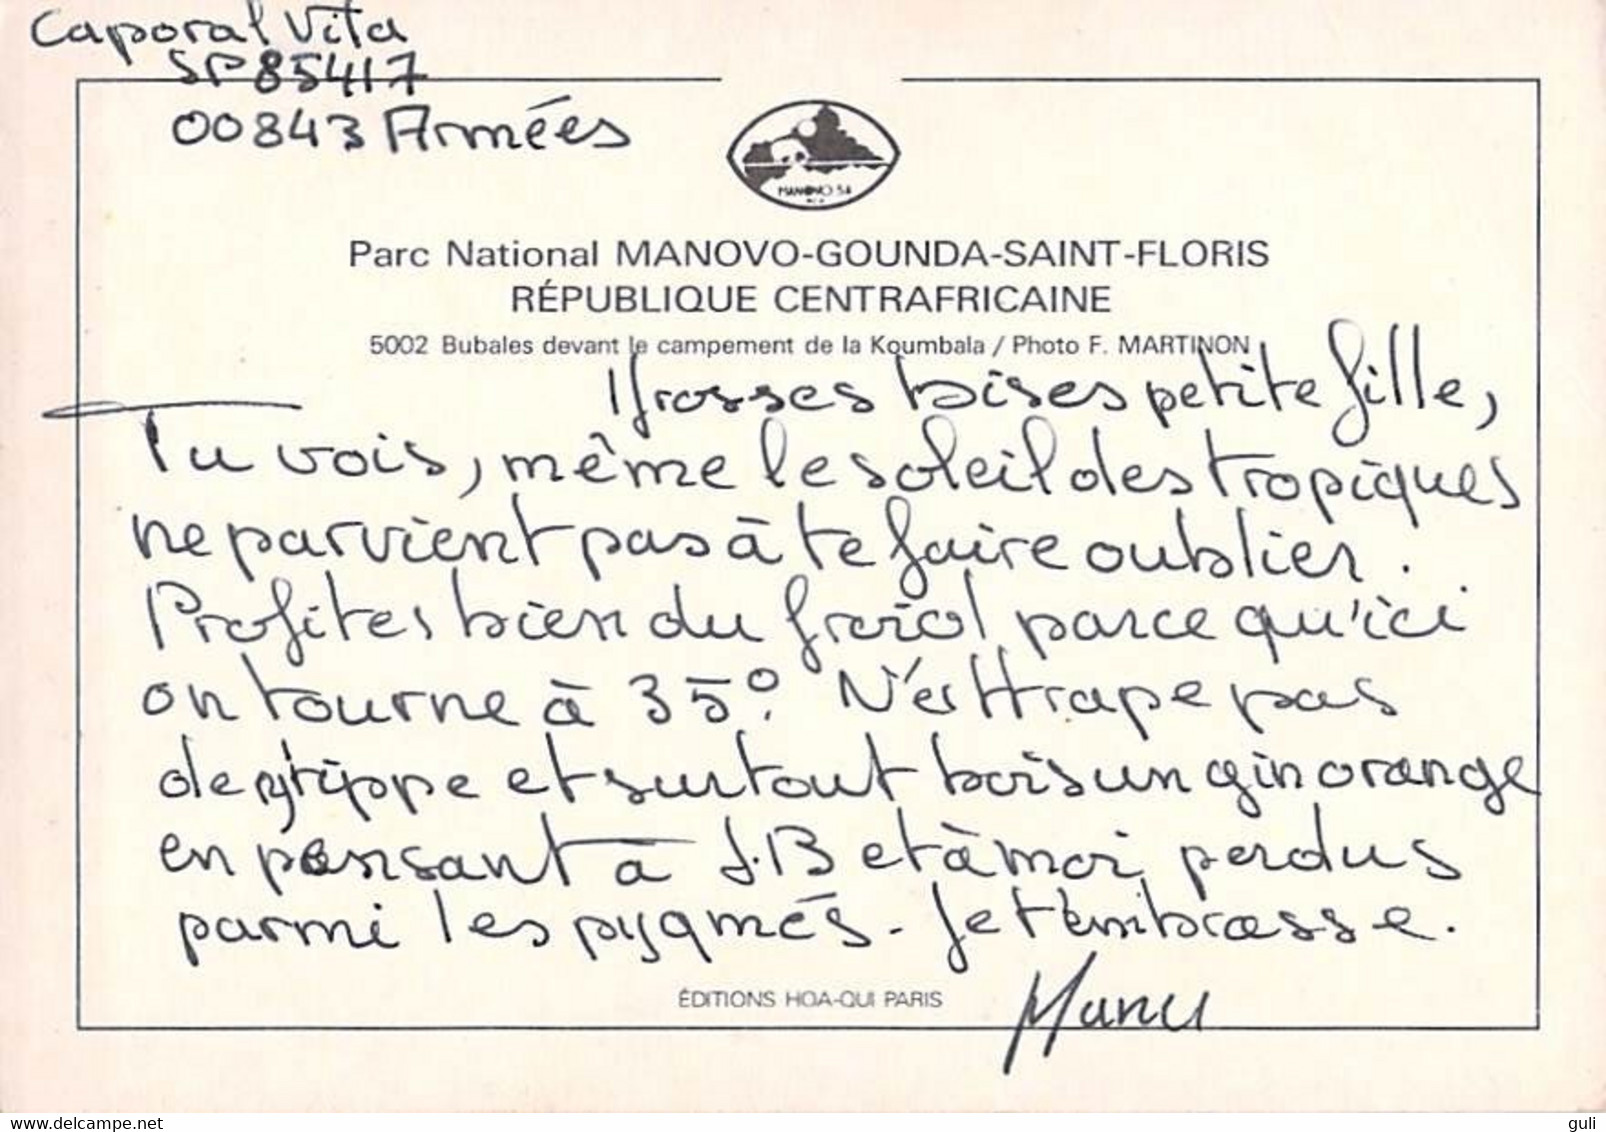 Caporal Vita
SP 85417
00843 Armées
MANOVO S.A
Parc National MANOVO-GOUNDA-SAINT-FLORIS
RÉPUBLIQUE CENTRAFRICAINE
5002 Bubales devant le campement de la Koumbala / Photo F. MARTINON
Grosses bises petite fille,
Tu vois, même le soleil des tropiques
ne parvient pas à te faire oublier.
Profites bien du froid parce qu'ici
on tourne à 35°. N'attrape pas
de grippe et surtout bois un gin orange
en pensant à J.B et à moi perdus
parmi les pygmés - Je t'embrasse.
ÉDITIONS HOA-QUI PARIS
Manu
www.delcampe.net
guli